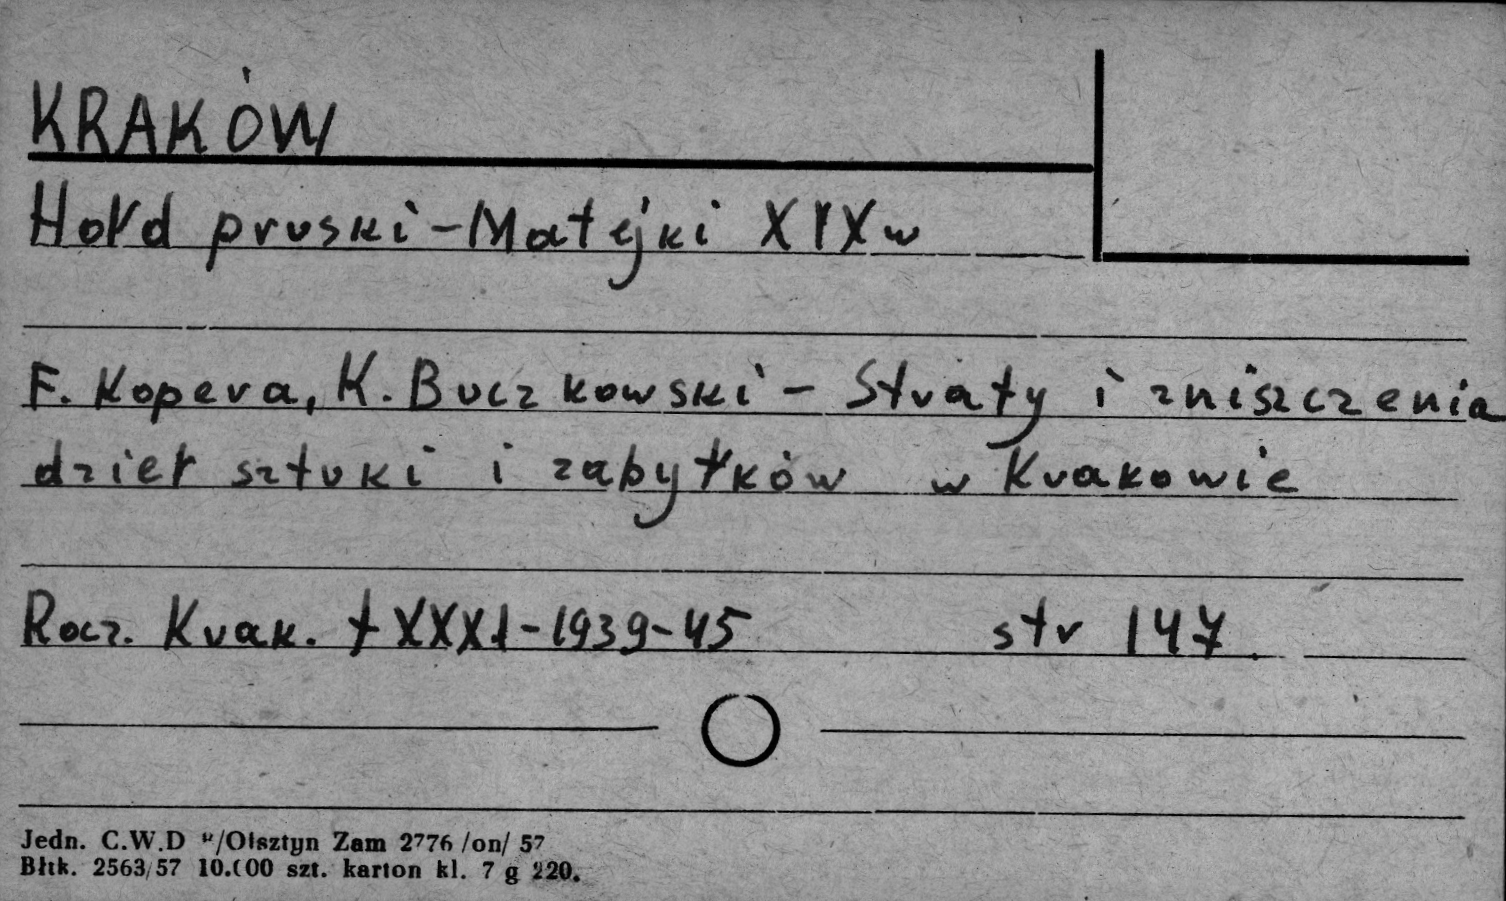 KRAKÓW
Hołd pruski - Matejki XIXw
F. Kopera, K. Buczkowski - Straty i zniszczenia
dzieł sztuki i zabytków w Krakowie
Rocz. Krak. t XXXI - 1939-45 str 147
Jedn. C.W.D /Olsztyn Zam 2776 /on/ 57
Błtk. 2563/57 10.000 szt. karton kl. 7 g 220.